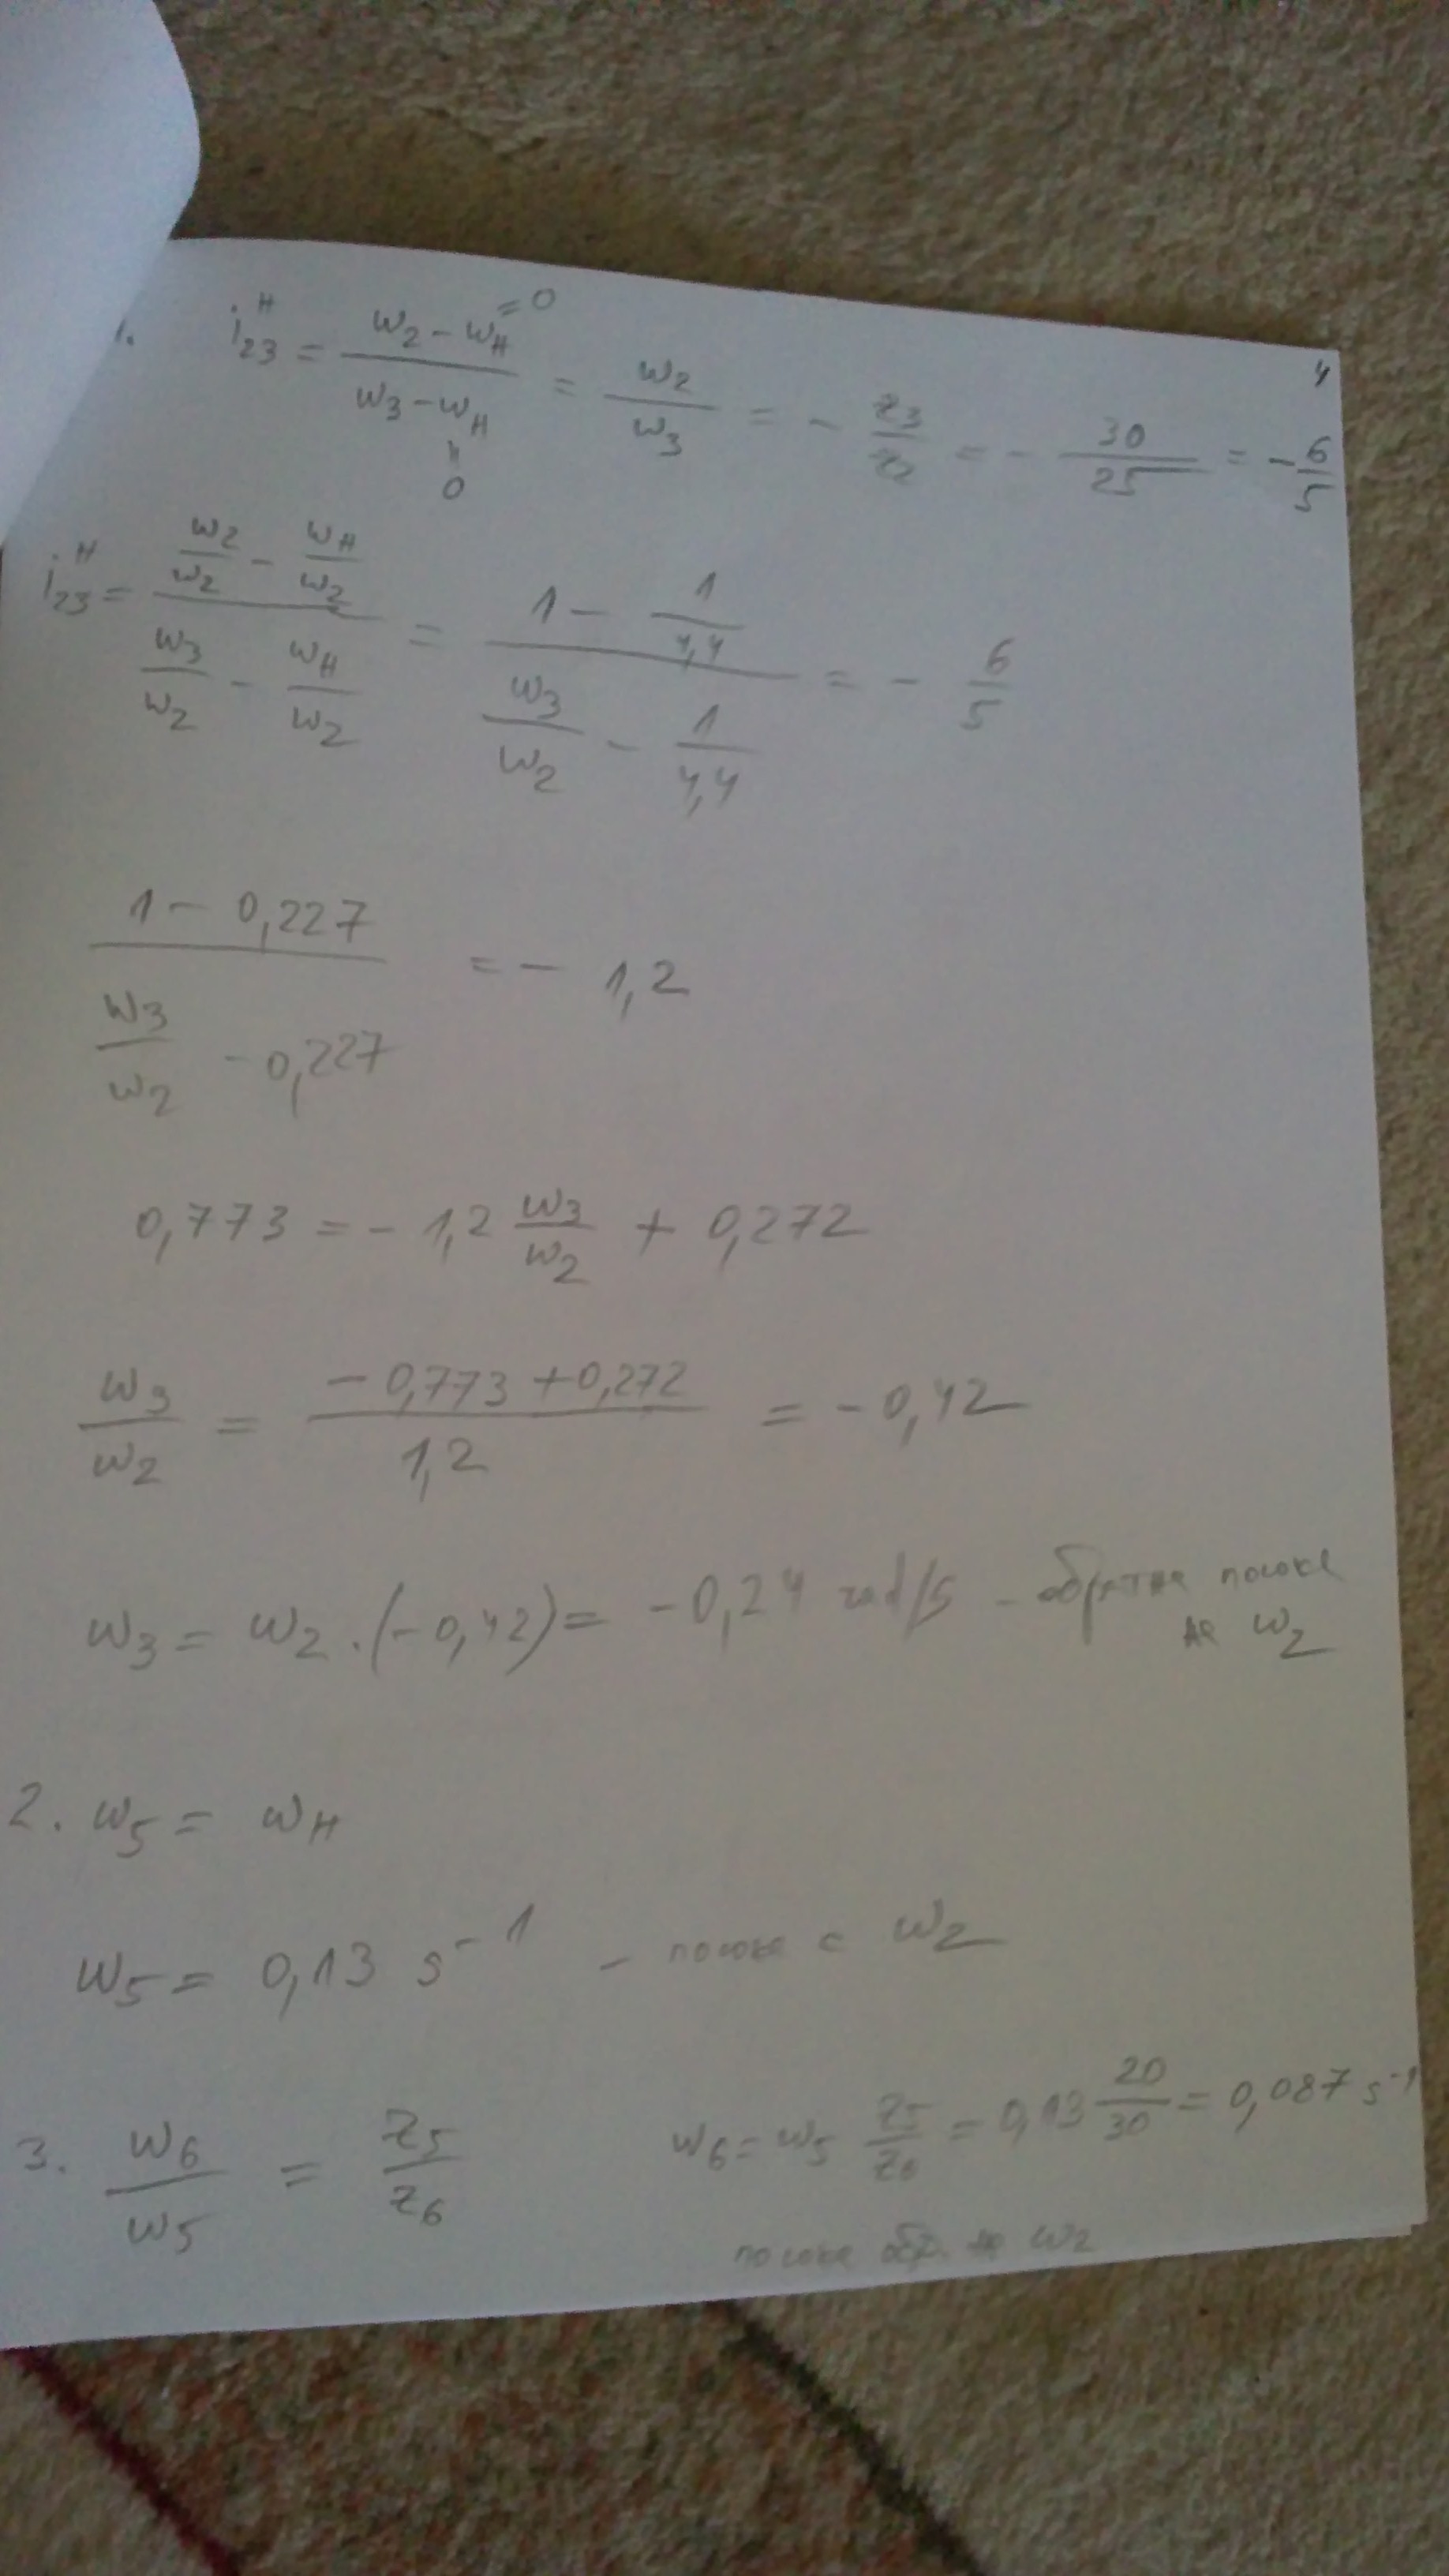 4
1. i₂₃ᴴ = (ω₂ - ωH = 0) / (ω₃ - ωH = 0) = ω₂/ω₃ = - z₃/z₂ = - 30/25 = - 6/5
i₂₃ᴴ = (ω₂/ω₂ - ωH/ω₂) / (ω₃/ω₂ - ωH/ω₂) = (1 - 1/4,4) / (ω₃/ω₂ - 1/4,4) = - 6/5
(1 - 0,227) / (ω₃/ω₂ - 0,227) = - 1,2
0,773 = - 1,2 ω₃/ω₂ + 0,272
ω₃/ω₂ = (- 0,773 + 0,272) / 1,2 = - 0,42
ω₃ = ω₂ . (- 0,42) = - 0,24 rad/s - обратна посока
на ω₂
2. ω₅ = ωH
ω₅ = 0,13 s⁻¹ - посока с ω₂
3. ω₆/ω₅ = z₅/z₆ ω₆ = ω₅ z₅/z₆ = 0,13 20/30 = 0,087 s⁻¹
посока обр. на ω₂